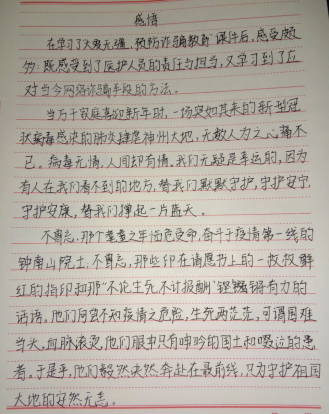 感悟
在学习了"大爱无疆,预防诈骗教育"课件后,感受颇
多:既感受到了医护人员的责任与担当,又学习到了应
对当今网络诈骗手段的方法。
当万千家庭喜迎新年时,一场突如其来的新型冠
状病毒感染的肺炎肆虐神州大地,无数人为之心痛不
已。病毒无情,人间却有情。我们无疑是幸运的,因为
有人在我们看不到的地方,替我们默默守护,守护安宁
守护安康,替我们撑起一片蓝天。
不曾忘,那个耄耋之年临危受命,奋斗于疫情第一线的
钟南山院士,不曾忘,那些印在请愿书上的一枚枚鲜
红的指印和那"不论生死,不计报酬"铿锵有力的
话语。他们何尝不知疫情之危险,生死两茫茫,可谓国难
当头,血脉滚烫,他们眼中只有呻吟的国土和啜泣的患
者。于是乎,他们毅然决然奔赴在最前线,只为守护祖国
大地的安然无恙。